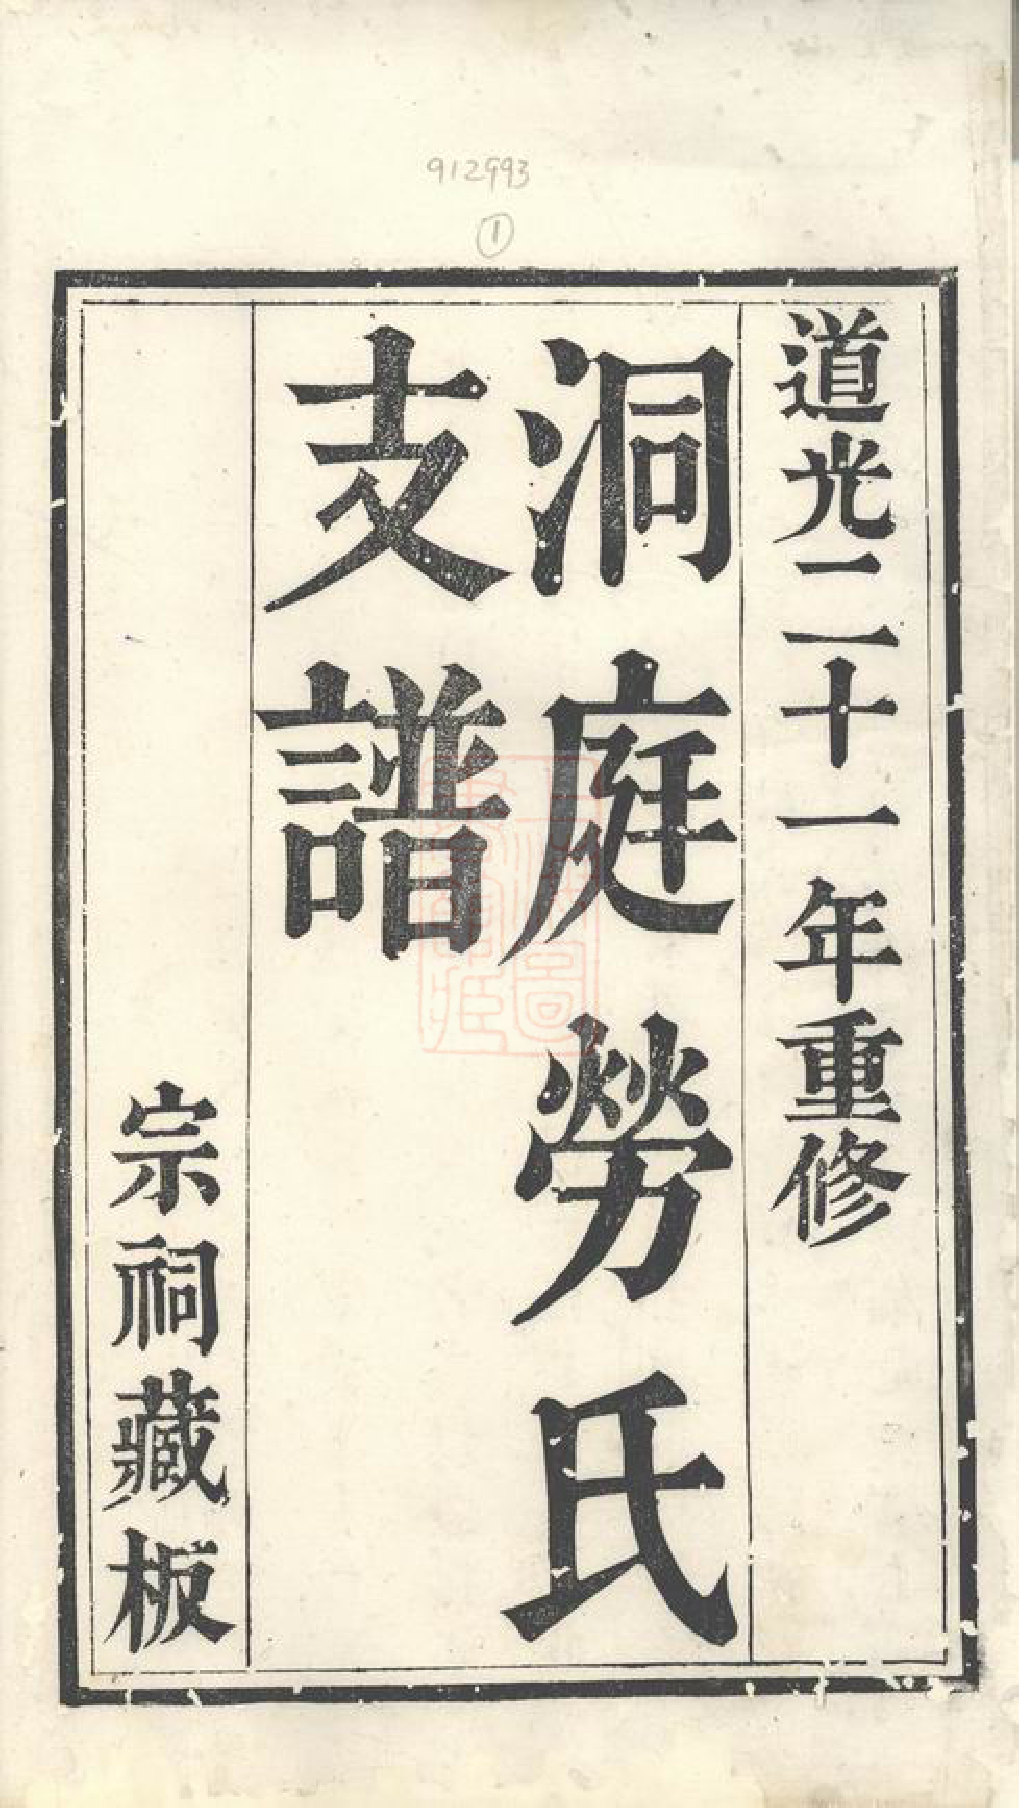 912993
1
道光二十一年重修
洞庭勞氏
支譜
宗祠藏板